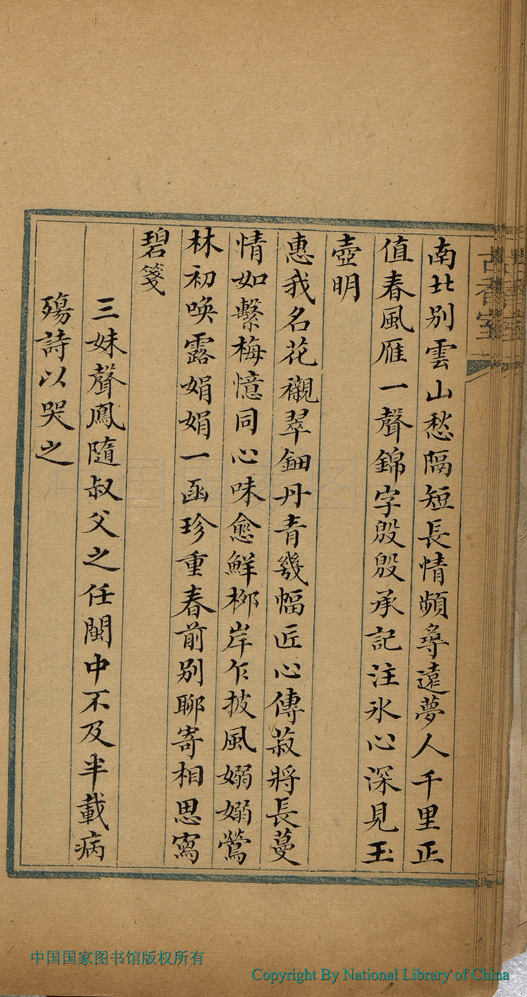 南北別雲山愁隔短長情頻尋遠夢人千里正
值春風雁一聲錦字殷殷承記注氷心深見玉
壺明
惠我名花襯翠鈿丹青幾幅匠心傳菽將長蔓
情如繫梅憶同心味愈鮮柳岸乍披風嫋嫋鶯
林初喚露娟娟一函珍重春前別聊寄相思寫
碧箋
三妹聲鳳隨叔父之任閩中不及半載病
殤詩以哭之
中国国家图书馆版权所有
Copyright By National Library of China